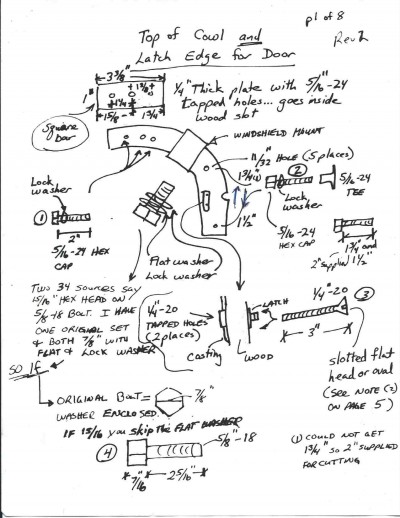 p1 of 8
Top of Cowl and
Latch Edge for Door
Rev 2
3 3/8"
1 3/8"
1"
1 1/4"
1 5/8"
1 3/4"
1/4" Thick plate with 5/16-24
tapped holes... goes inside
wood slot
Square
bar
WINDSHIELD MOUNT
11/32" HOLE (5 places)
1 3/4"(1)
2
Lock
washer
1
2"
5/16-24 HEX
CAP
Lock
washer
5/16-24
TEE
5/16-24
HEX CAP
1 1/2"
1 3/4" and
2" supplied 1 1/2"
Flat washer
Lock washer
Two 34 sources say
15/16" HEX HEAD ON
5/8-18 BOLT. I HAVE
ONE ORIGINAL SET
& BOTH 7/8" WITH
FLAT & LOCK WASHER
SO IF
1/4-20
TAPPED HOLES
(2 places)
Casting
LATCH
WOOD
1/4"-20
3
3"
slotted flat
head or oval
(SEE NOTE (2)
ON PAGE 5)
ORIGINAL BOLT =
WASHER ENCLOSED.
7/8"
IF 15/16 you skip the FLAT WASHER
4
5/8"-18
7/16"
2 5/16"
(1) COULD NOT GET
1 3/4" SO 2" SUPPLIED
FOR CUTTING